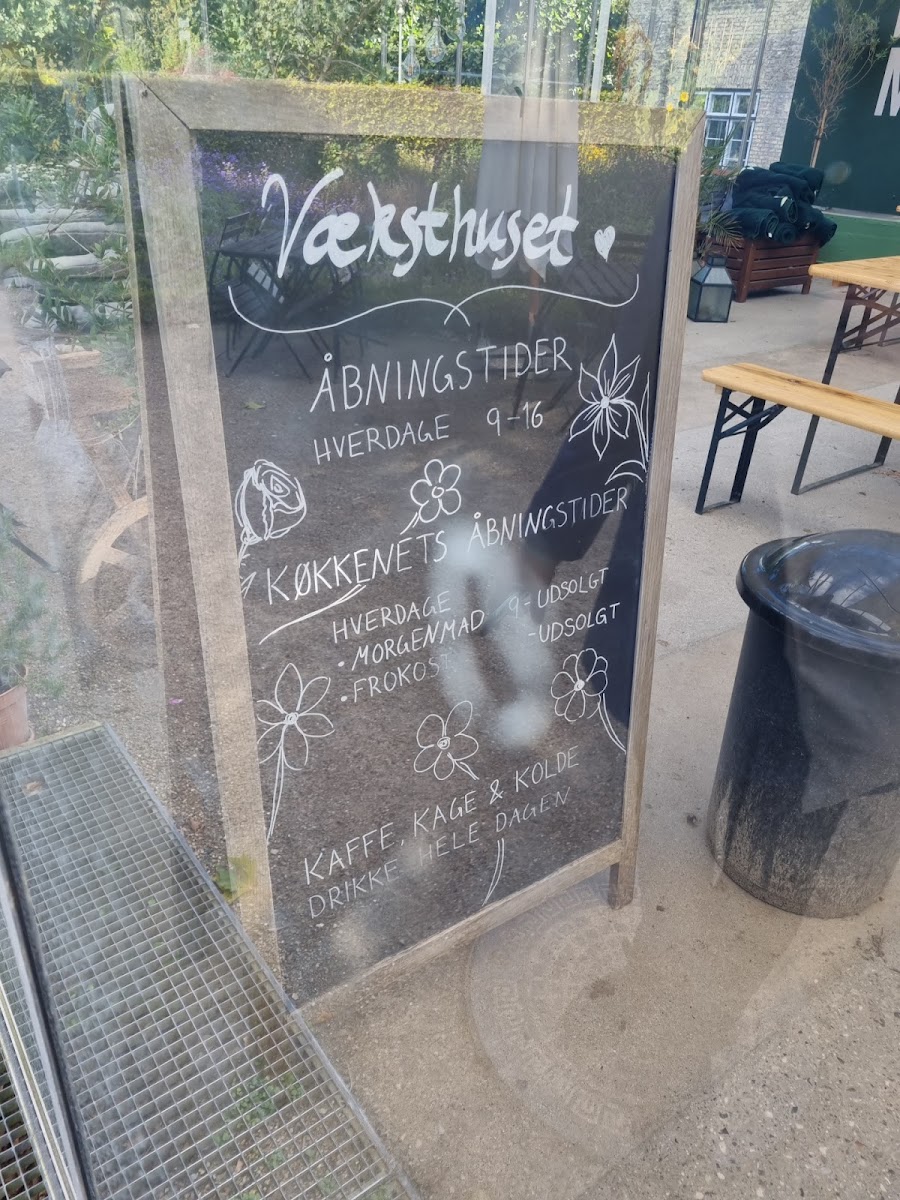 Væksthuset
ÅBNINGSTIDER
HVERDAGE 9-16
KØKKENETS ÅBNINGSTIDER
HVERDAGE
• MORGENMAD 9-UDSOLGT
• FROKOST -UDSOLGT
KAFFE, KAGE & KOLDE
DRIKKE HELE DAGEN